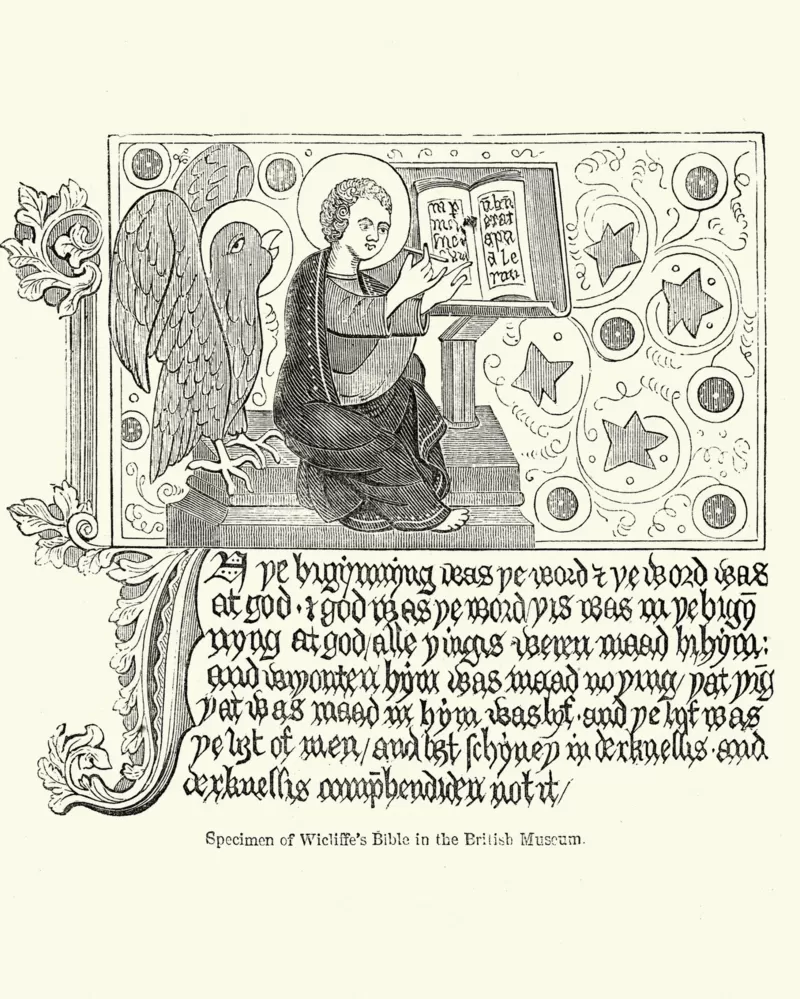 IN ye bigynnyng was ye word ⁊ ye word was
at god · ⁊ god was ye word yis was in ye bigyn̄
nyng at god / alle yingis weren maad bi hym:
and wiyouten hym was maad no ying / yat yīg
yat was maad in hym was lyf · and ye lyf was
ye liȝt of men / and liȝt schyney in derknessis · and
derknessis comp̄hendiden not it /
Specimen of Wicliffe's Bible in the British Museum.